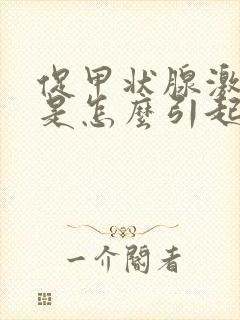 促甲状腺激
是怎麼引起
一介閣者